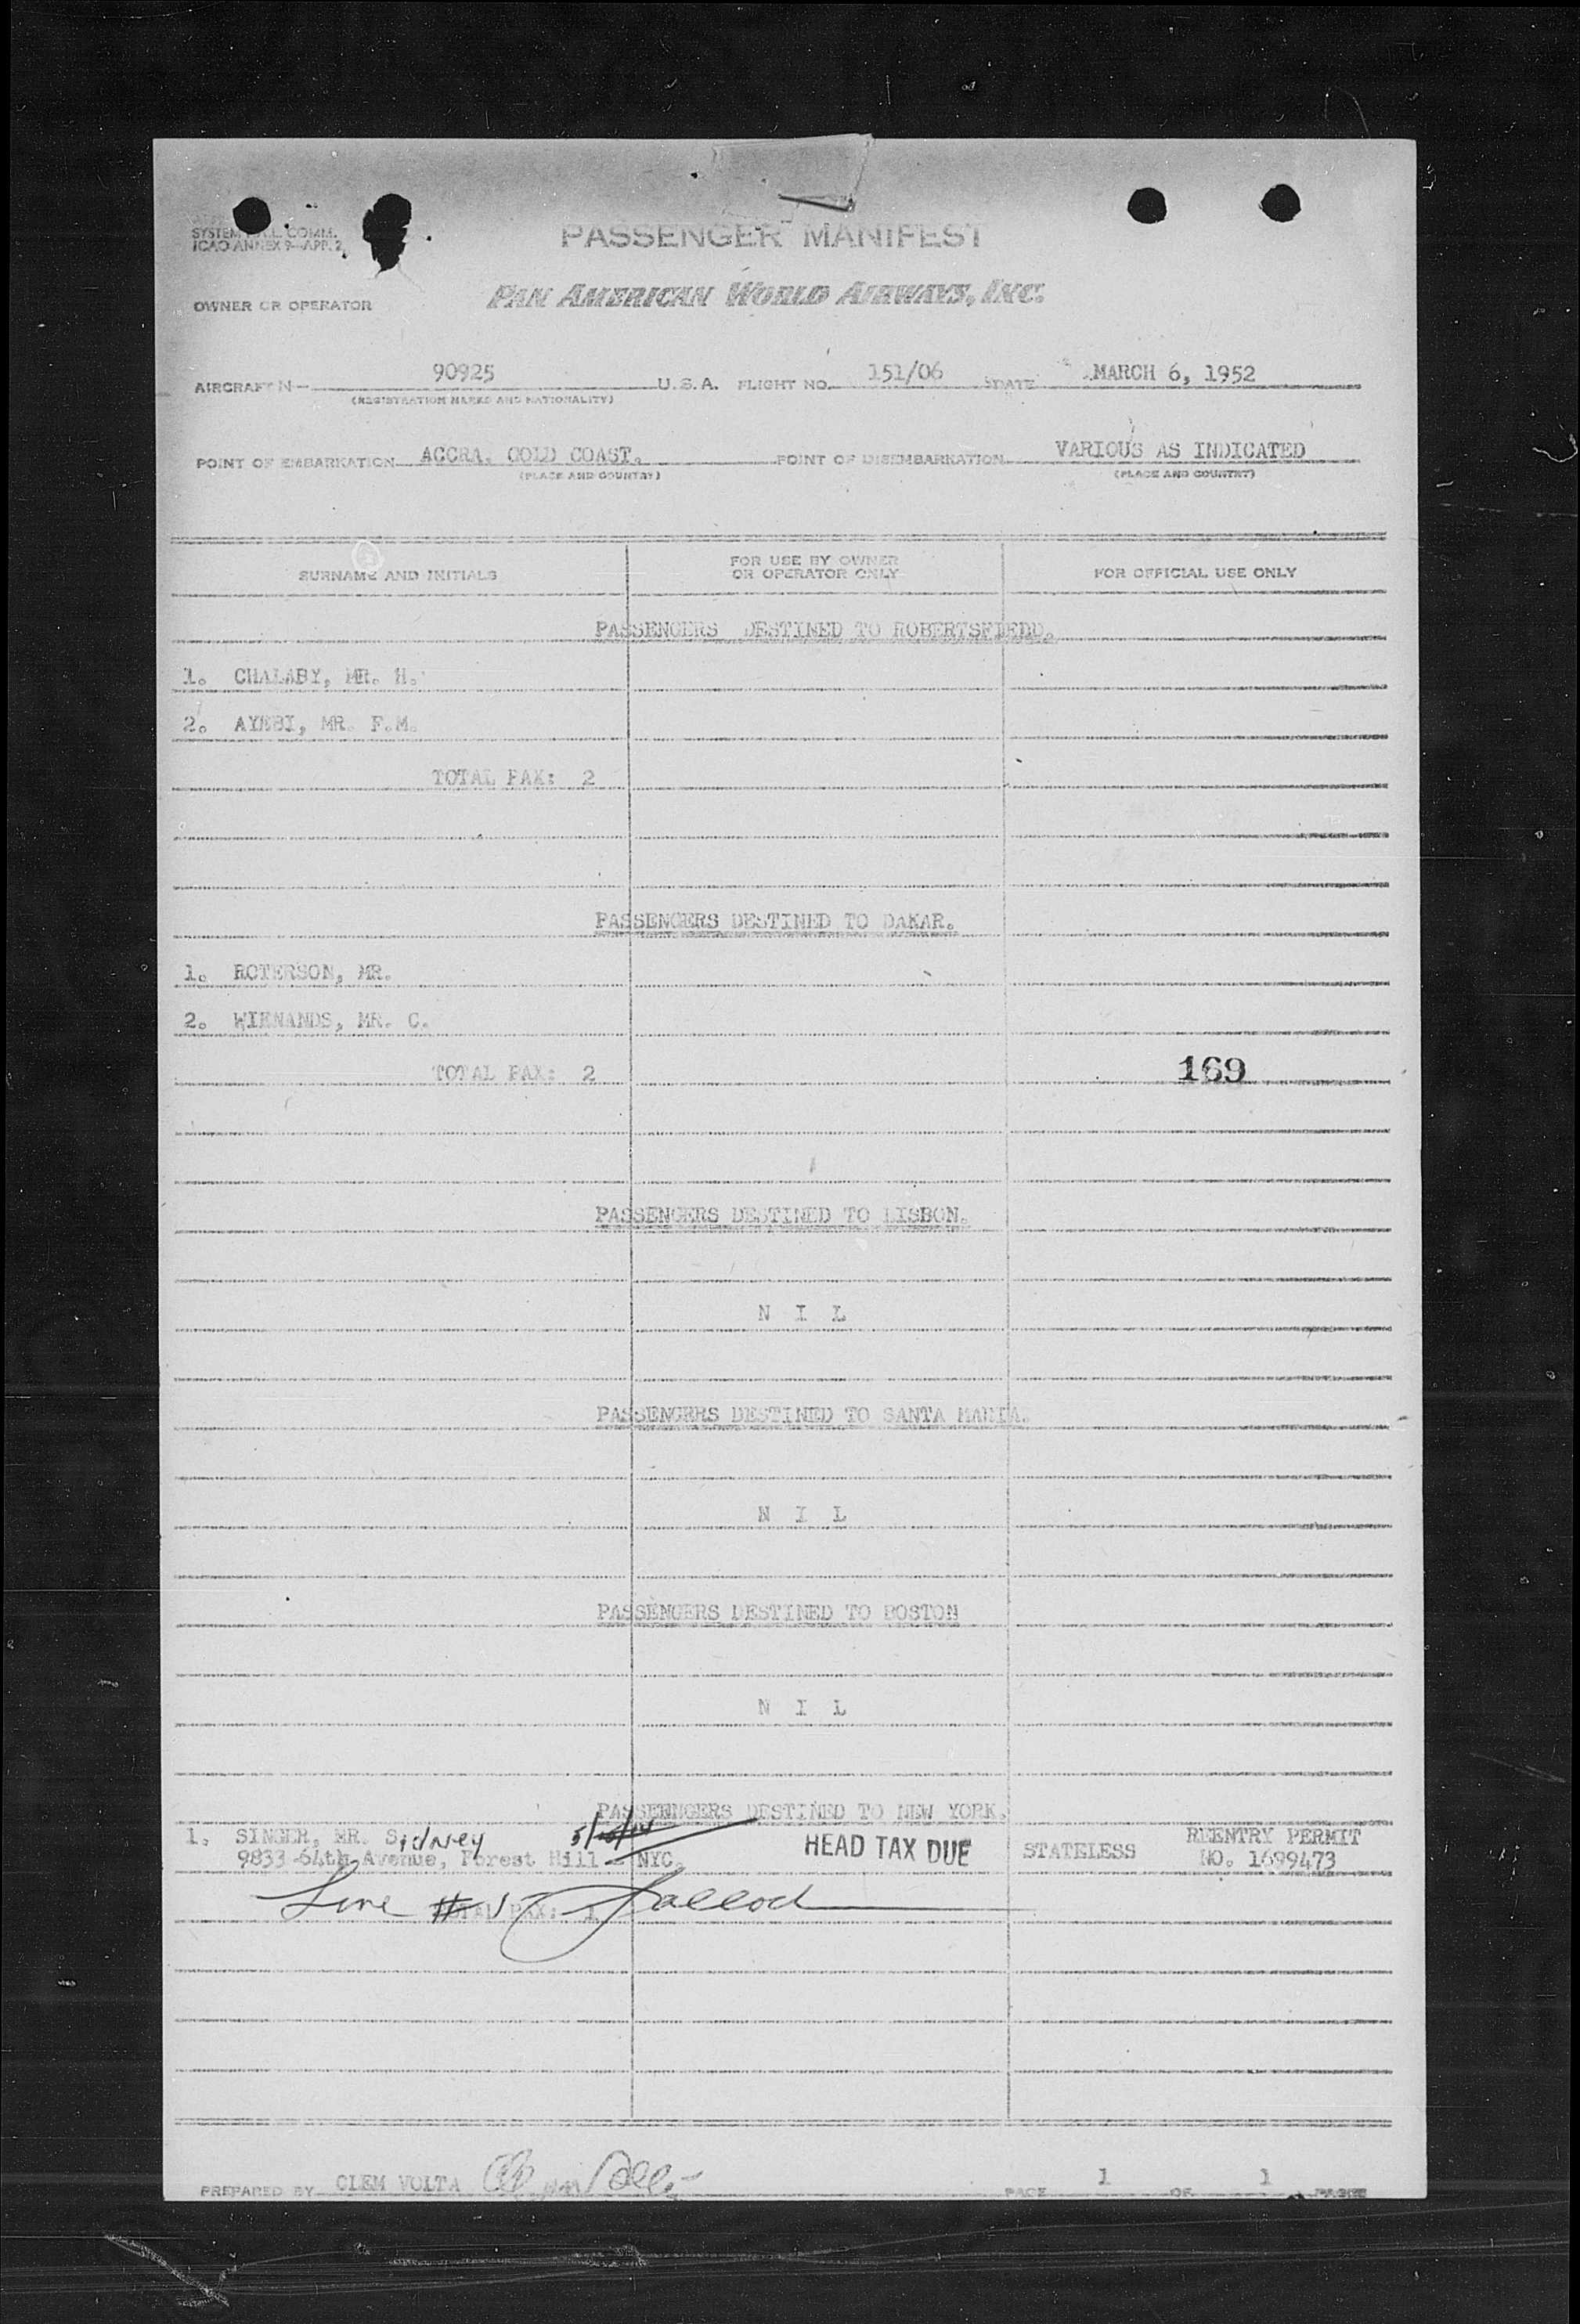 SYSTEM COMM.
ICAO ANNEX 9—APP. 2
PASSENGER MANIFEST
OWNER OR OPERATOR PAN AMERICAN WORLD AIRWAYS, INC.
AIRCRAFT N— 90925 U.S.A. FLIGHT NO. 151/06 DATE MARCH 6, 1952
(REGISTRATION MARKS AND NATIONALITY)
POINT OF EMBARKATION ACCRA. GOLD COAST. POINT OF DISEMBARKATION VARIOUS AS INDICATED
(PLACE AND COUNTRY) (PLACE AND COUNTRY)
SURNAME AND INITIALS FOR USE BY OWNER OR OPERATOR ONLY FOR OFFICIAL USE ONLY
PASSENGERS DESTINED TO ROBERTSFIELD.
1. CHALABY, MR. H.
2. AYEBI, MR. F.M.
TOTAL PAX: 2
PASSENGERS DESTINED TO DAKAR.
1. ROTERSON, MR.
2. WIENANDS, MR. C.
TOTAL PAX: 2 169
PASSENGERS DESTINED TO LISBON.
N I L
PASSENGERS DESTINED TO SANTA MARIA.
N I L
PASSENGERS DESTINED TO BOSTON
N I L
PASSENGERS DESTINED TO NEW YORK.
1. SINGER, MR. Sidney HEAD TAX DUE STATELESS REENTRY PERMIT
9833 64th Avenue, Forest Hill - NYC. NO. 1699473
Line #1
TOTAL PAX: 1
PREPARED BY CLEM VOLTA PAGE 1 OF 1 PAGES